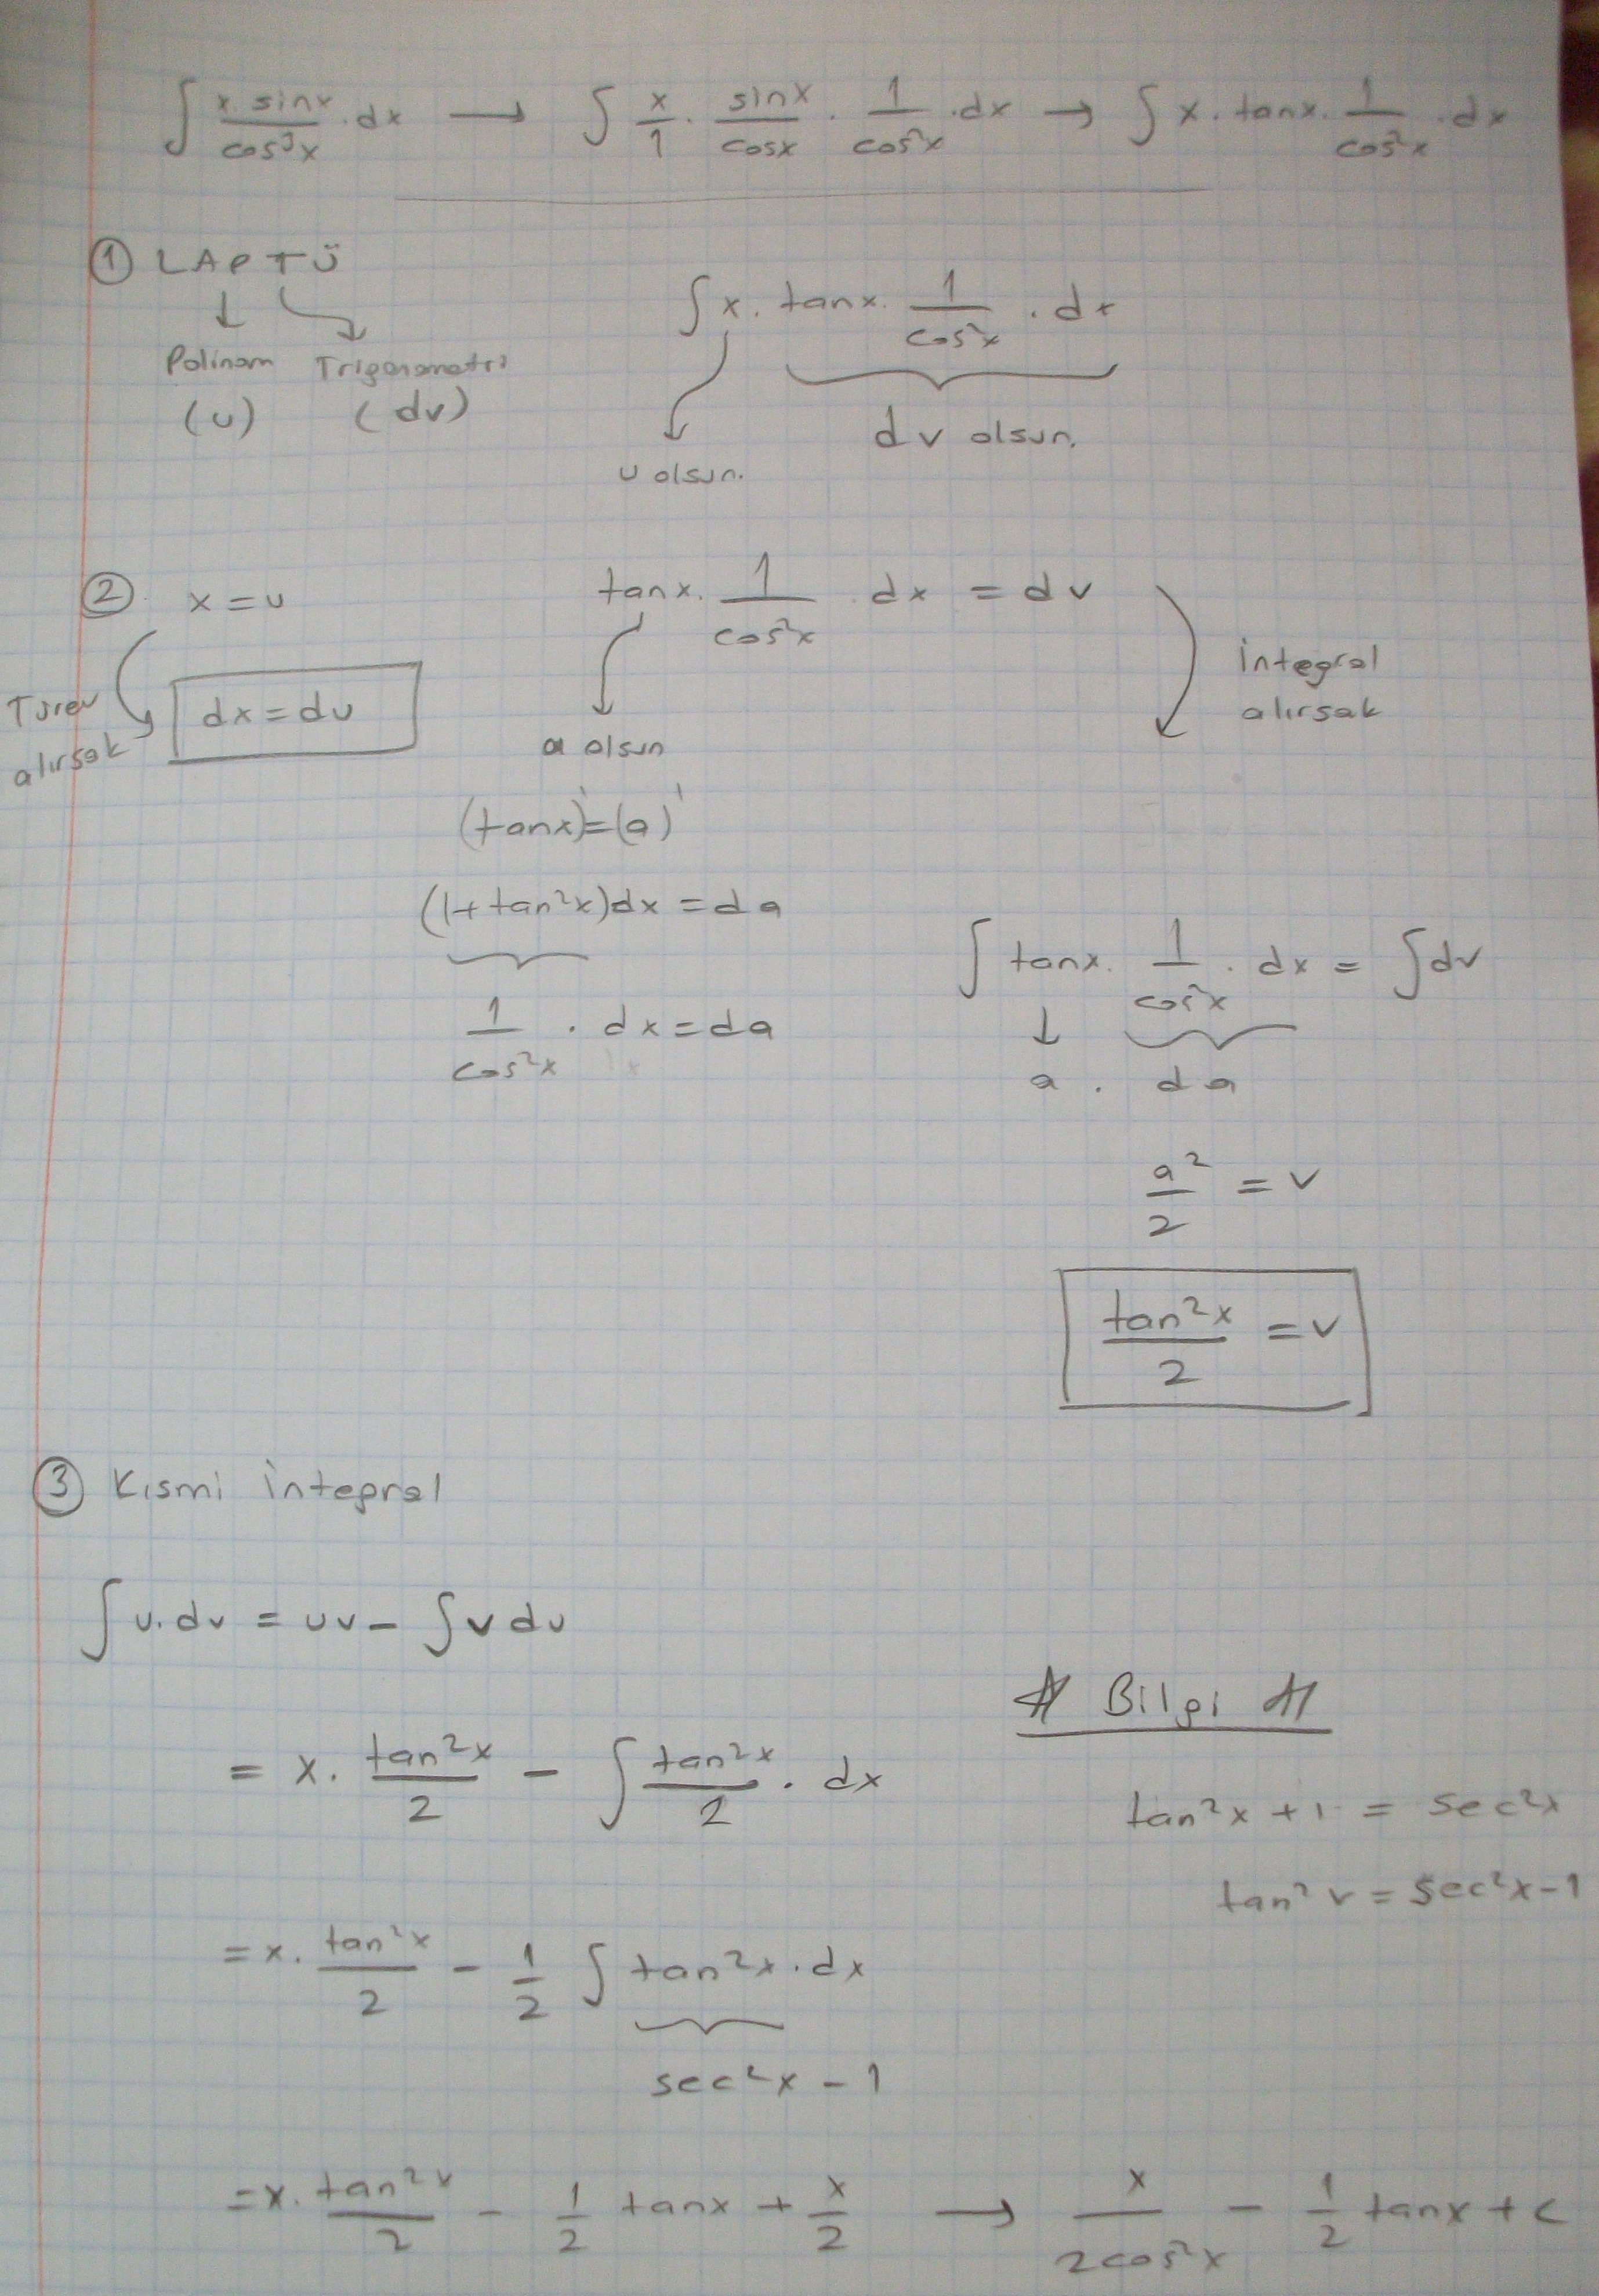 ∫ x.sinx/cos³x .dx → ∫ x/1 . sinx/cosx . 1/cos²x .dx → ∫ x.tanx. 1/cos²x .dx
① LAPTÜ
Polinom Trigonometri
(u) (dv)
∫ x. tanx. 1/cos²x . dx
u olsun. dv olsun.
② x = u
Türev alırsak
dx = du
tanx. 1/cos²x dx = dv
a olsun
İntegral alırsak
(tanx)' = (a)'
(1+tan²x)dx = da
1/cos²x . dx = da
∫ tanx. 1/cos²x . dx = ∫dv
a . da
a²/2 = v
tan²x/2 = v
③ Kısmi İntegral
∫u.dv = uv - ∫v du
= x. tan²x/2 - ∫ tan²x/2 . dx
= x. tan²x/2 - 1/2 ∫ tan²x.dx
sec²x - 1
Bilgi
tan²x + 1 = sec²x
tan²x = sec²x - 1
= x. tan²x/2 - 1/2 tanx + x/2 → x/2cos²x - 1/2 tanx + c